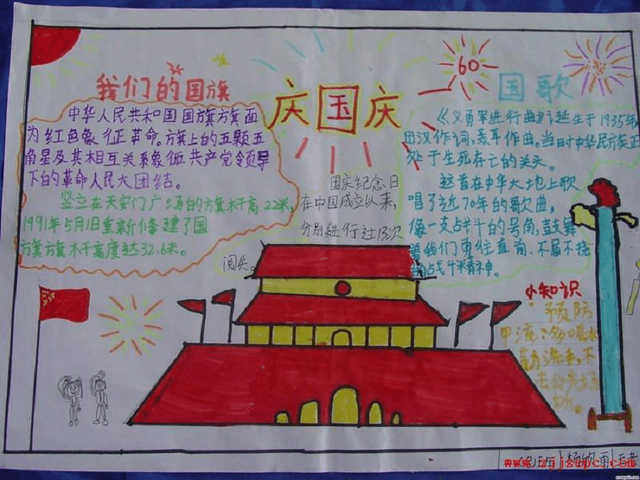 我们的国旗
中华人民共和国国旗旗面
为红色象征革命。旗上的五颗五
角星及其相互关系象征共产党领导
下的革命人民大团结。
竖立在天安门广场的旗杆高22米,
1991年5月1日重新修建了国
旗旗杆高度达32.6米。
庆国庆
国庆纪念日
在中国成立以来,
分别进行过13次
阅兵。
60
国歌
《义勇军进行曲》诞生于1935年
田汉作词,聂耳作曲。当时中华民族正
处于生死存亡的关头。
这首在中华大地上歌
唱了近70年的歌曲,
像一支战斗的号角,鼓舞
着我们勇往直前、不屈不挠
的战斗精神。
小知识
预防
甲流:多喝